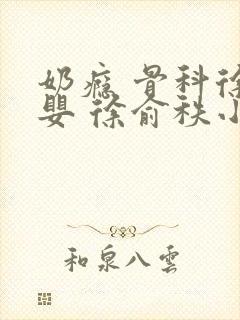 奶瘾 骨科徐
婴 徐俞秩小
和泉八雲